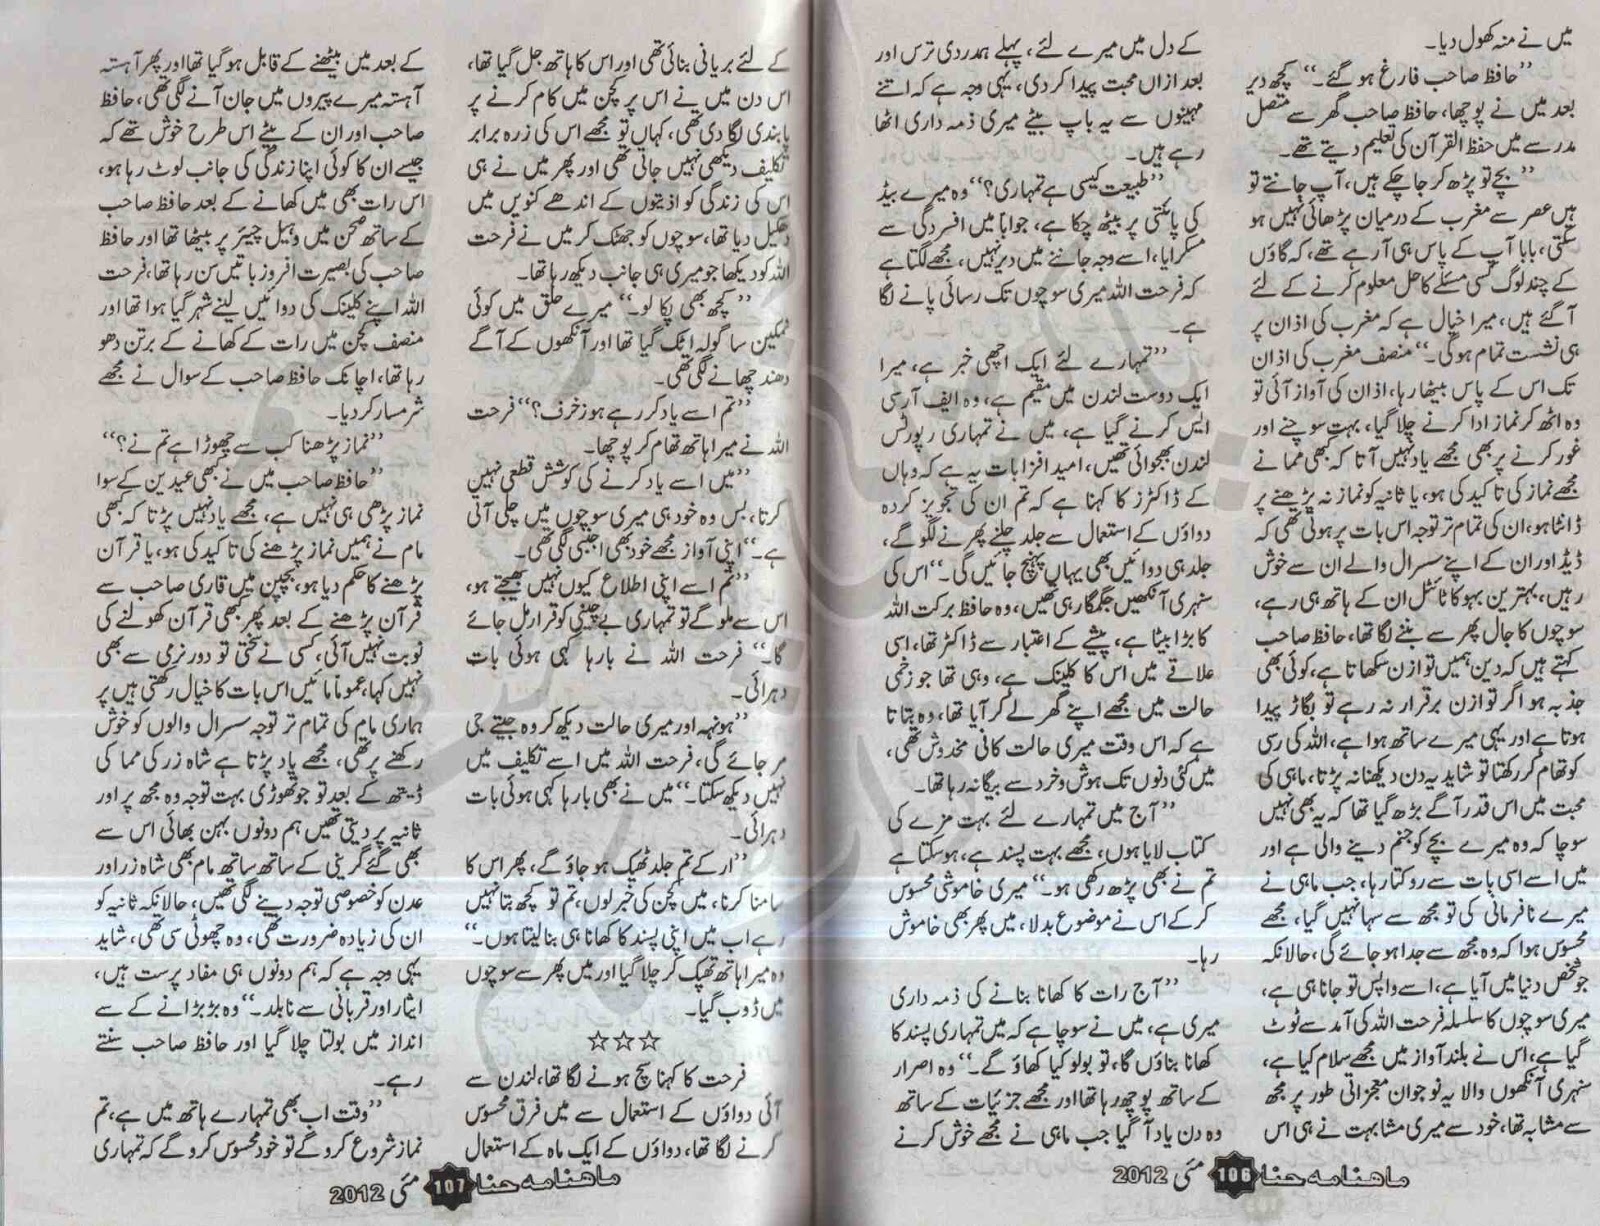 میں نے منہ کھول دیا۔
"حافظ صاحب فارغ ہو گئے۔" کچھ دیر
بعد میں نے پوچھا، حافظ صاحب گھر سے متصل
مدرسے میں حفظ القرآن کی تعلیم دیتے تھے۔
"بچے تو پڑھ کر جا چکے ہیں، آپ جانتے تو
ہیں عصر سے مغرب کے درمیان پڑھائی نہیں ہو
سکتی، بابا آپ کے پاس ہی آ رہے تھے، کہ گاؤں
کے چند لوگ کسی مسئلے کا حل معلوم کرنے کے لئے
آ گئے ہیں، میرا خیال ہے کہ مغرب کی اذان پر
ہی نشست تمام ہو گی۔" منصف مغرب کی اذان
تک اس کے پاس بیٹھا رہا، اذان کی آواز آئی تو
وہ اٹھ کر نماز ادا کرنے چلا گیا، بہت سوچنے اور
غور کرنے پر بھی مجھے یاد نہیں آتا کہ کبھی مما نے
مجھے نماز کی تاکید کی ہو، یا ثانیہ کو نماز نہ پڑھنے پر
ڈانٹا ہو، ان کی تمام تر توجہ اس بات پر ہوتی تھی کہ
ڈیڈ اور ان کے اپنے سسرال والے ان سے خوش
رہیں، بہترین بہو کا ٹائٹل ان کے ہاتھ ہی رہے،
سوچوں کا جال پھر سے بننے لگا تھا، حافظ صاحب
کہتے ہیں کہ دین ہمیں توازن سکھاتا ہے، کوئی بھی
جذبہ ہو اگر توازن برقرار نہ رہے تو بگاڑ پیدا
ہوتا ہے اور یہی میرے ساتھ ہوا ہے، اللہ کی رسی
کو تھام کر رکھتا تو شاید یہ دن دیکھنا نہ پڑتا، ماہی کی
محبت میں اس قدر آگے بڑھ گیا تھا کہ یہ بھی نہیں
سوچا کہ وہ میرے بچے کو جنم دینے والی ہے اور
میں اسے اسی بات سے روکتا رہا، جب ماہی نے
میرے نافرمانی کی تو مجھ سے سہا نہیں گیا، مجھے
محسوس ہوا کہ وہ مجھ سے جدا ہو جائے گی، حالانکہ
جو شخص دنیا میں آیا ہے، اسے واپس تو جانا ہی ہے،
میری سوچوں کا سلسلہ فرحت اللہ کی آمد سے ٹوٹ
گیا ہے، اس نے بلند آواز میں مجھے سلام کیا ہے،
سنہری آنکھوں والا یہ نوجوان معجزاتی طور پر مجھ
سے مشابہ تھا، خود سے میری مشابہت نے ہی اس
کے دل میں میرے لئے، پہلے ہمدردی ترس اور
بعد ازاں محبت پیدا کر دی، یہی وجہ ہے کہ اتنے
مہینوں سے یہ باپ بیٹے میری ذمہ داری اٹھا
رہے ہیں۔
"طبیعت کیسی ہے تمہاری؟" وہ میرے بیڈ
کی پائنتی پر بیٹھ چکا ہے، جواباً میں افسردگی سے
مسکرایا، اسے وجہ جاننے میں دیر نہیں، مجھے لگتا ہے
کہ فرحت اللہ میری سوچوں تک رسائی پانے لگا
ہے۔
"تمہارے لئے ایک اچھی خبر ہے، میرا
ایک دوست لندن میں مقیم ہے، وہ ایف آر سی
ایس کرنے گیا ہے، میں نے تمہاری رپورٹس
لندن بھجوائی تھیں، امید افزا بات یہ ہے کہ وہاں
کے ڈاکٹرز کا کہنا ہے کہ تم ان کی تجویز کردہ
دواؤں کے استعمال سے جلد چلنے پھرنے لگو گے،
جلد ہی دوائیں بھی یہاں پہنچ جائیں گی۔" اس کی
سنہری آنکھیں جگمگا رہی تھیں، وہ حافظ برکت اللہ
کا بڑا بیٹا ہے، پیشے کے اعتبار سے ڈاکٹر تھا، اسی
علاقے میں اس کا کلینک ہے، وہی تھا جو زخمی
حالت میں مجھے اپنے گھر لے کر آیا تھا، وہ بتاتا
ہے کہ اس وقت میری حالت کافی مخدوش تھی،
میں کئی دنوں تک ہوش و خرد سے بیگانہ رہا تھا۔
"آج میں تمہارے لئے بہت مزے کی
کتاب لایا ہوں، مجھے بہت پسند ہے، ہو سکتا ہے
تم نے بھی پڑھ رکھی ہو۔" میری خاموشی محسوس
کر کے اس نے موضوع بدلا، میں پھر بھی خاموش
رہا۔
"آج رات کا کھانا بنانے کی ذمہ داری
میری ہے، میں نے سوچا ہے کہ میں تمہاری پسند کا
کھانا بناؤں گا، تو بولو کیا کھاؤ گے۔" وہ اصرار
کے ساتھ پوچھ رہا تھا اور مجھے جزئیات کے ساتھ
وہ دن یاد آ گیا جب ماہی نے مجھے خوش کرنے
ماھنامہ حنا 106 مئی 2012
کے لئے بریانی بنائی تھی اور اس کا ہاتھ جل گیا تھا،
اس دن میں نے اس پر کچن میں کام کرنے پر
پابندی لگا دی تھی، کہاں تو مجھے اس کی زرہ برابر
تکلیف دیکھی نہیں جاتی تھی اور پھر میں نے ہی
اس کی زندگی کو اذیتوں کے اندھے کنویں میں
دھکیل دیا تھا، سوچوں کو جھٹک کر میں نے فرحت
اللہ کو دیکھا جو میری ہی جانب دیکھ رہا تھا۔
"کچھ بھی پکا لو۔" میرے حلق میں کوئی
نمکین سا گولہ اٹک گیا تھا اور آنکھوں کے آگے
دھند چھانے لگی تھی۔
"تم اسے یاد کر رہے ہو زخرف؟" فرحت
اللہ نے میرا ہاتھ تھام کر پوچھا۔
"میں اسے یاد کرنے کی کوشش قطعی نہیں
کرتا، بس وہ خود ہی میری سوچوں میں چلی آتی
ہے۔" اپنی آواز مجھے خود بھی اجنبی لگی تھی۔
"تم اسے اپنی اطلاع کیوں نہیں بھیجتے ہو،
اس سے ملو گے تو تمہاری بے چینی کو قرار مل جائے
گا۔" فرحت اللہ نے بارہا کہی ہوئی بات
دہرائی۔
"ہونہہ اور میری حالت دیکھ کر وہ جیتے جی
مر جائے گی، فرحت اللہ میں اسے تکلیف میں
نہیں دیکھ سکتا۔" میں نے بھی بارہا کہی ہوئی بات
دہرائی۔
"ارے تم جلد ٹھیک ہو جاؤ گے، پھر اس کا
سامنا کرنا، میں کچن کی خبر لوں، تم تو کچھ بتا نہیں
رہے اب میں اپنی پسند کا کھانا ہی بنا لیتا ہوں۔"
وہ میرا ہاتھ تھپک کر چلا گیا اور میں پھر سے سوچوں
میں ڈوب گیا۔
☆☆☆
فرحت کا کہنا سچ ہونے لگا تھا، لندن سے
آئی دواؤں کے استعمال سے میں فرق محسوس
کرنے لگا تھا، دواؤں کے ایک ماہ کے استعمال
کے بعد میں بیٹھنے کے قابل ہو گیا تھا اور پھر آہستہ
آہستہ میرے پیروں میں جان آنے لگی تھی، حافظ
صاحب اور ان کے بیٹے اس طرح خوش تھے کہ
جیسے ان کا کوئی اپنا زندگی کی جانب لوٹ رہا ہو،
اس رات بھی میں کھانے کے بعد حافظ صاحب
کے ساتھ صحن میں وہیل چیئر پر بیٹھا تھا اور حافظ
صاحب کی بصیرت افروز باتیں سن رہا تھا، فرحت
اللہ اپنے کلینک کی دوائیں لینے شہر گیا ہوا تھا اور
منصف کچن میں رات کے کھانے کے برتن دھو
رہا تھا، اچانک حافظ صاحب کے سوال نے مجھے
شرمسار کر دیا۔
"نماز پڑھنا کب سے چھوڑا ہے تم نے؟"
"حافظ صاحب میں نے کبھی عیدین کے سوا
نماز پڑھی ہی نہیں ہے، مجھے یاد نہیں پڑتا کہ کبھی
مام نے ہمیں نماز پڑھنے کی تاکید کی ہو، یا قرآن
پڑھنے کا حکم دیا ہو، بچپن میں قاری صاحب سے
قرآن پڑھنے کے بعد پھر کبھی قرآن کھولنے کی
نوبت نہیں آئی، کسی نے سختی تو دور نرمی سے بھی
نہیں کہا، عموماً مائیں اس بات کا خیال رکھتی ہیں پر
ہماری مام کی تمام تر توجہ سسرال والوں کو خوش
رکھنے پر تھی، مجھے یاد پڑتا ہے شاہ زر کی مما کی
ڈیتھ کے بعد تو جو تھوڑی بہت توجہ وہ مجھ پر اور
ثانیہ پر دیتی تھیں ہم دونوں بہن بھائی اس سے
بھی گئے گرینی کے ساتھ ساتھ مام بھی شاہ زر اور
عدن کو خصوصی توجہ دینے لگی تھیں، حالانکہ ثانیہ کو
ان کی زیادہ ضرورت تھی، وہ چھوٹی سی تھی، شاید
یہی وجہ ہے کہ ہم دونوں ہی مفاد پرست ہیں،
ایثار اور قربانی سے نابلد۔" وہ بڑبڑانے کے سے
انداز میں بولتا چلا گیا اور حافظ صاحب سنتے
رہے۔
"وقت اب بھی تمہارے ہاتھ میں ہے، تم
نماز شروع کرو گے تو خود محسوس کرو گے کہ تمہاری
ماھنامہ حنا 107 مئی 2012